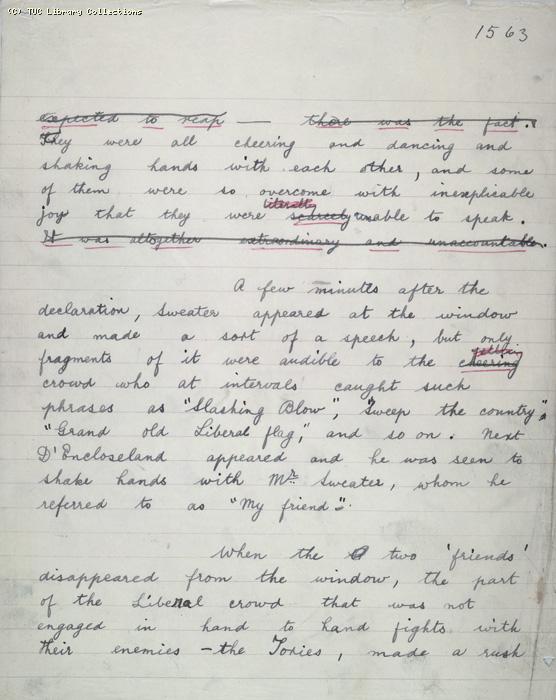 (C) TUC Library Collections
1563
expected to reap — there was the fact.
They were all cheering and dancing and
shaking hands with each other, and some
of them were so overcome with inexplicable
literally
joy that they were scarcely unable to speak.
It was altogether extraordinary and unaccountable.
A few minutes after the
declaration, Sweater appeared at the window
and made a sort of a speech, but only
yelling
fragments of it were audible to the cheering
crowd who at intervals caught such
phrases as "Slashing Blow", "Sweep the country",
"Grand old Liberal flag," and so on. Next
D'Encloseland appeared and he was seen to
shake hands with Mr Sweater, whom he
referred to as "My friend".
When the two 'friends'
disappeared from the window, the part
of the Liberal crowd that was not
engaged in hand to hand fights with
their enemies – the Tories, made a rush